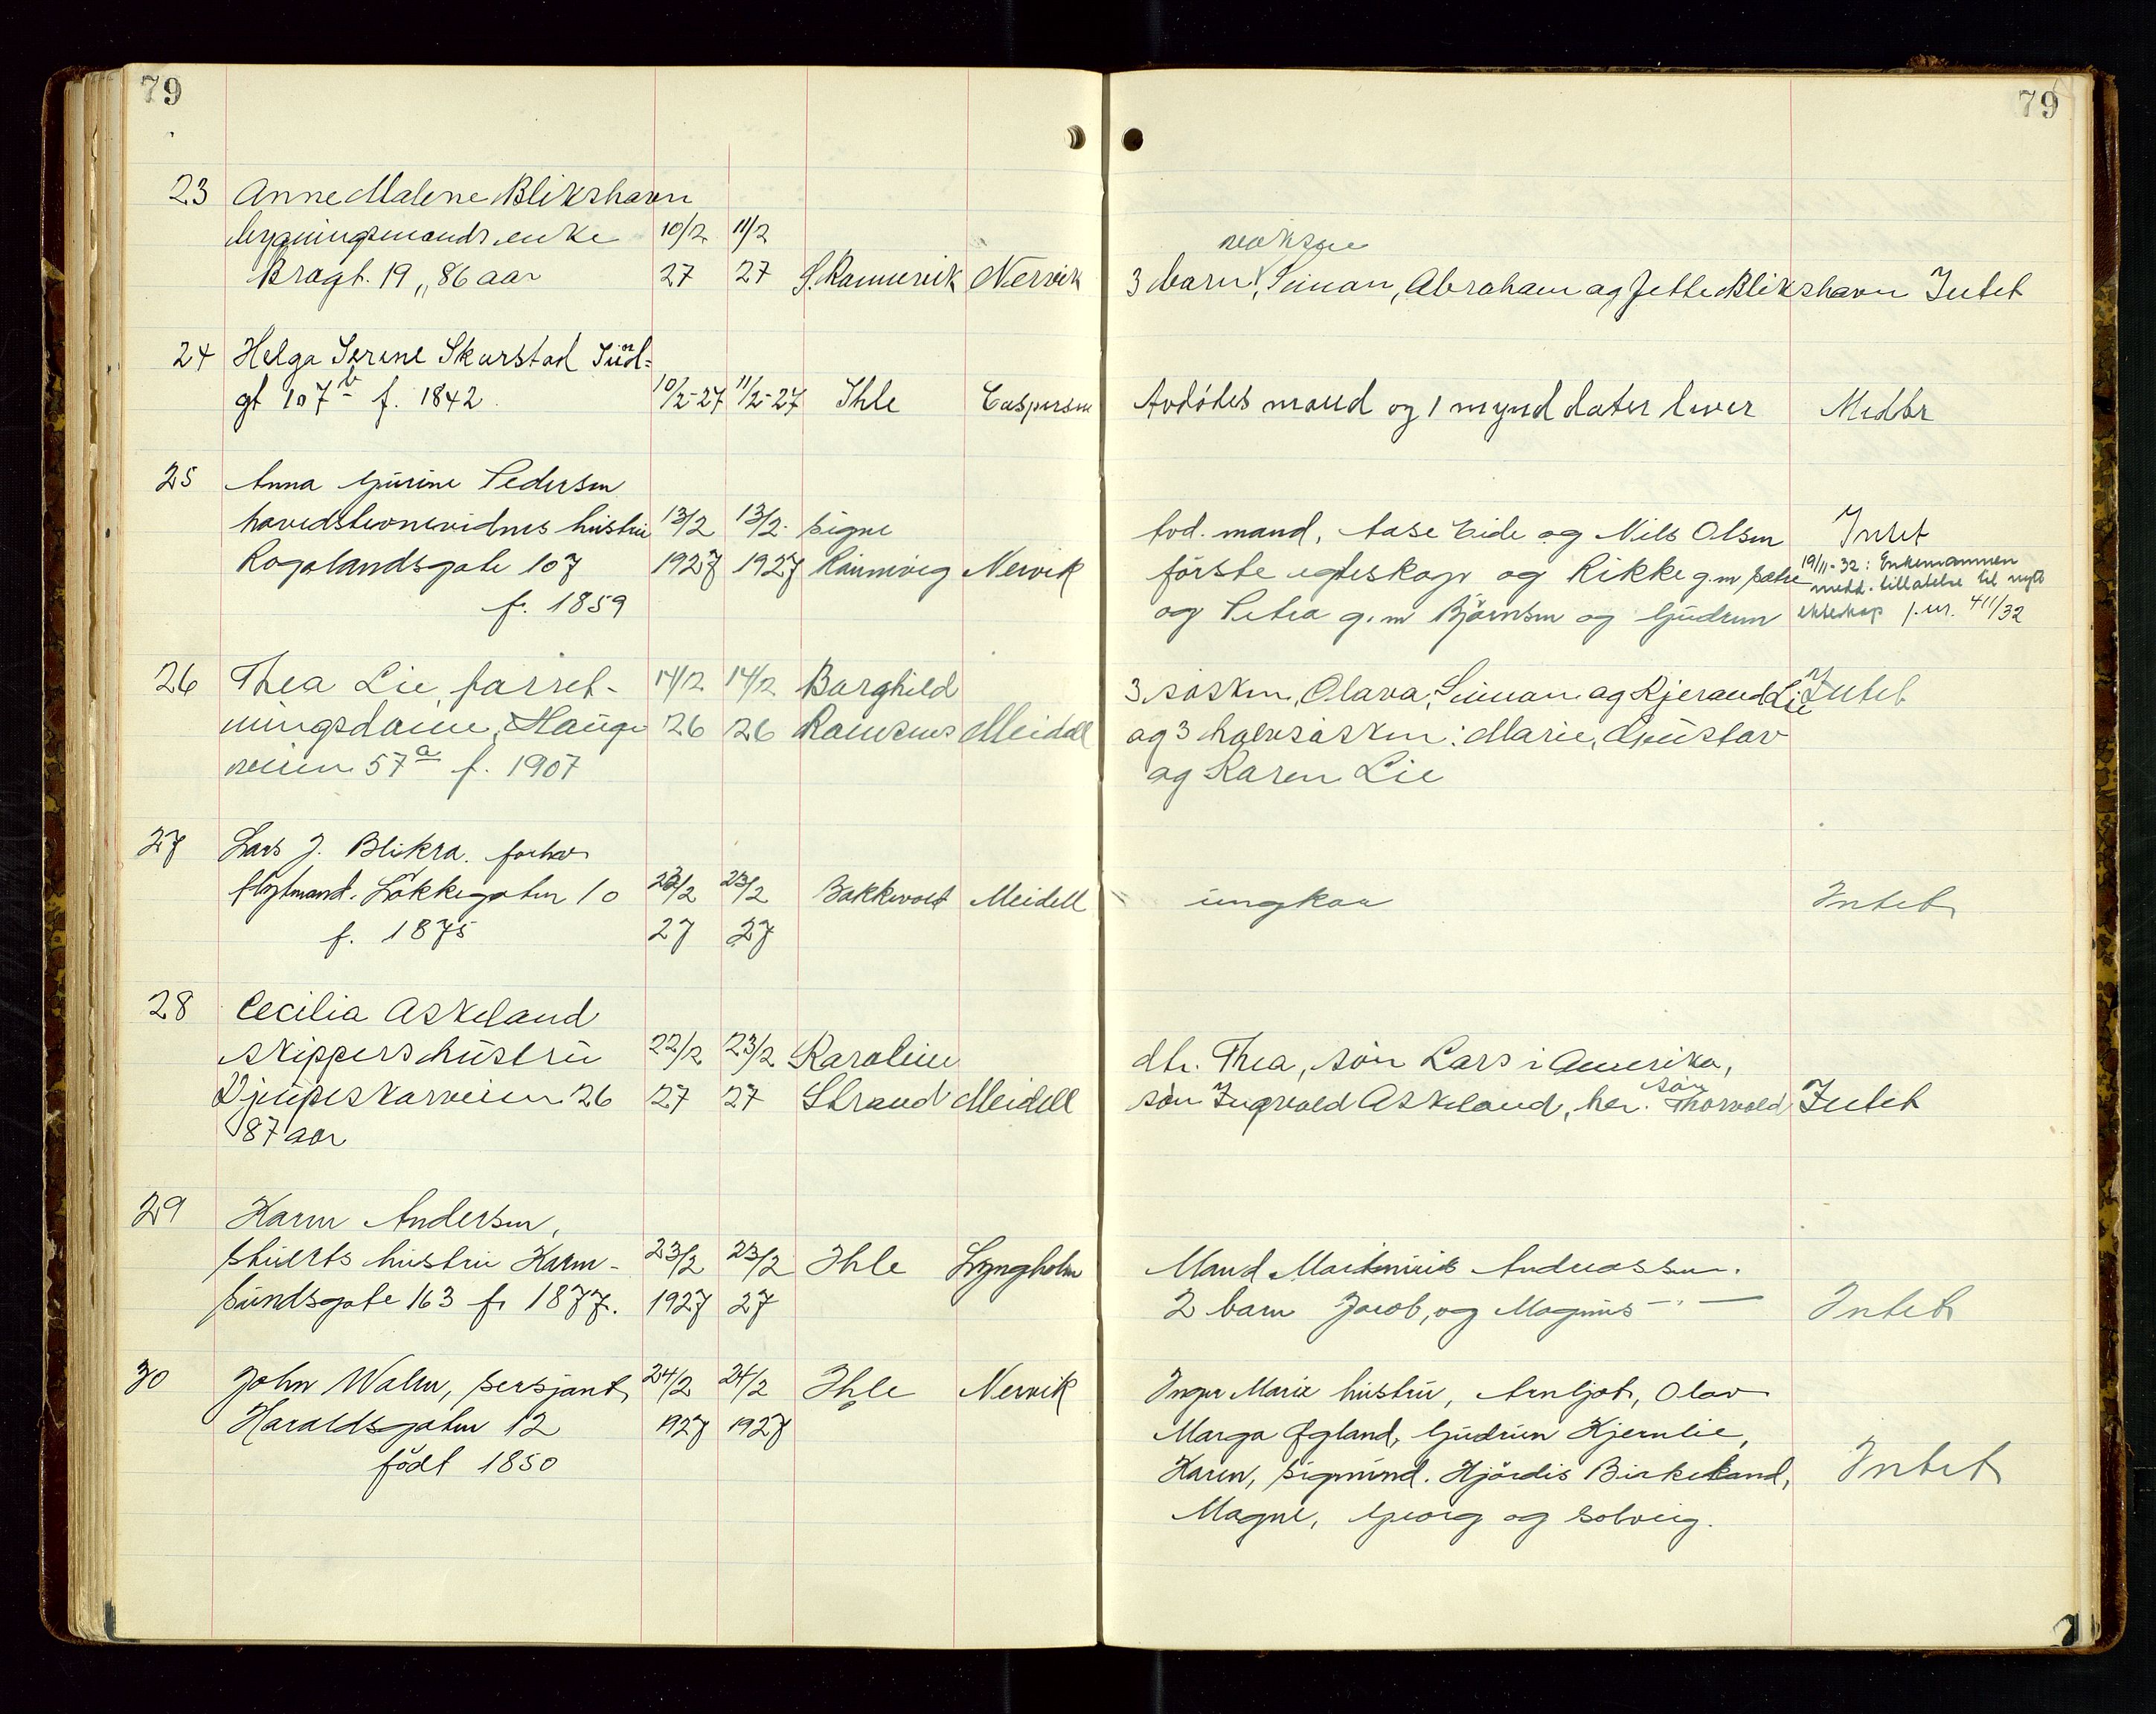 79
79
23 Anne Malene Blikshavn
bygningsmands enke 10/2 11/2
voksne
Bragt. 19, 86 aar 27 27 S. Rannevik Nervik 3 barn, Simon, Abraham og Jette Blikshavn Intet
24 Helga Serine Skarstad
gt 107 b f. 1842 10/2-27 11/2-27 Ihle Caspersen Avdødes mand og 1 mynd dater lever Medbr
25 Anna Gurine Pedersen
husbru 13/2 13/2 Signe Avd. mand, Aase Eide og Nils Olsen Intet
Rogalandsgate 107 1927 1927 Nervik første egteskap og Rikke g.m 19/11-32: Enkemannen
medd. tillatelse til nytt
f. 1859 og Petra g.m Bjørnsen og Gudrun ekteskap j.nr. 411/32
26 Thea Lie, forret- 14/2 14/2 Borghild 3 søsken, Olava, Simon og Kjerand Lie Intet
ningsdame, Hauge 26 26 Meidell og 3 halvsøsken: Marie, Gustav
veien 57 a f. 1907 og Karen Lie
27 Lars J. Blikra. forhv
Løkkegaten 10 22/2 23/2 Bakkevold Meidell ungkar Intet
f. 1875 27 27
28 Cecilia Askeland
skippers hustru 22/2 23/2 Karoline dtr. Thea, søn Lars i Amerika,
søn
Djupeskarveien 26 27 27 Strand Meidell søn Ingvald Askeland, her. Thorvald Intet
87 aar
29 Karen Andersen,
stuerts hustru Karm- 23/2 23/2 Ihle Lyngholm Mand Martinius Andreassen.
sundsgate 163 f. 1877. 1927 27 2 barn Jacob, og Magnus -"- Intet
30 John Walen, sersjant 24/2 24/2 Ihle Nervik Inger Marie hustru, Arnljot, Olav
Haraldsgaten 12 1927 1927 Marga Øgland, Gudrun Kjernlie,
født 1850 Karen, Sigmund. Hjørdis Birkeland, Intet
Magne, Georg og Solveig.